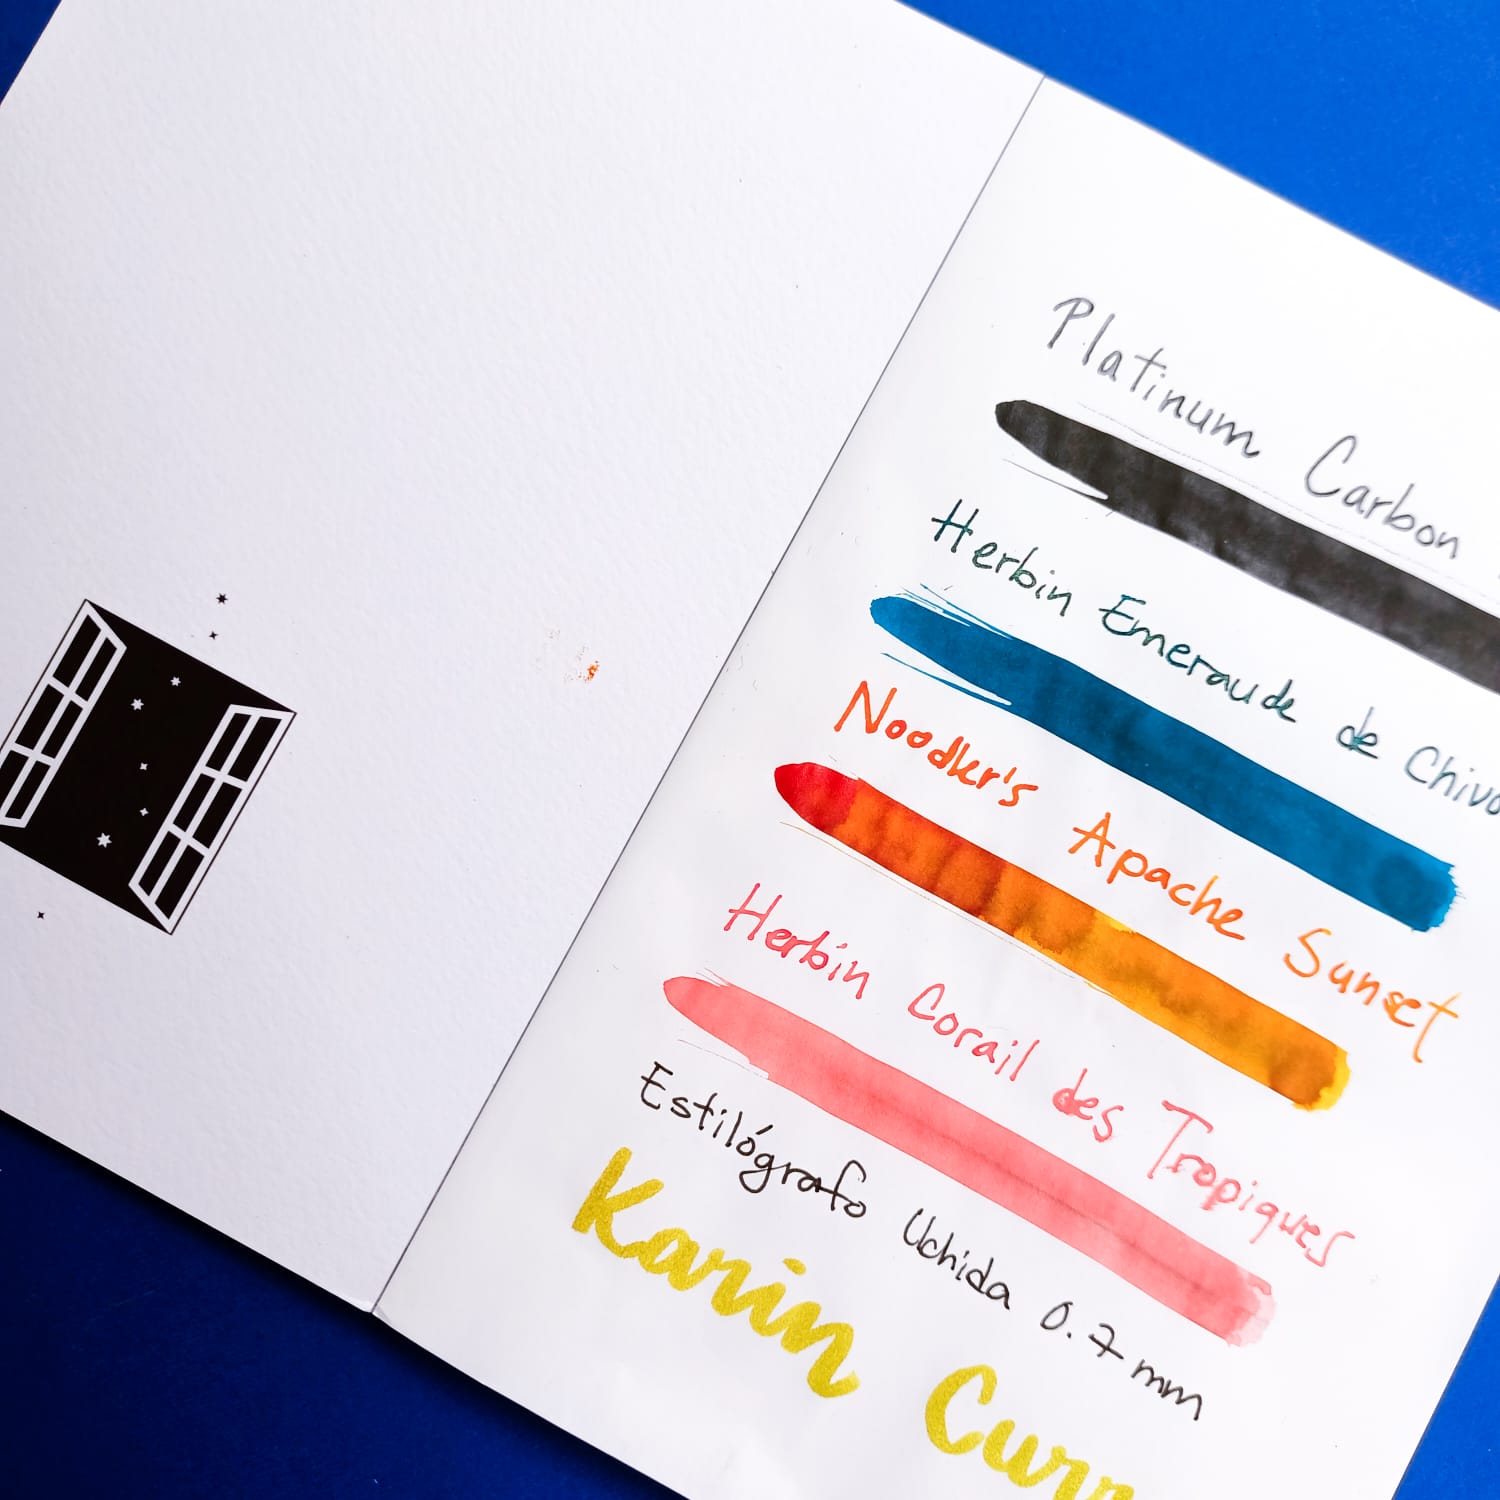 Platinum Carbon
Herbin Emeraude de Chivo
Noodler's Apache Sunset
Herbin Corail des Tropiques
Estilógrafo Uchida 0.7 mm
Karin Curr